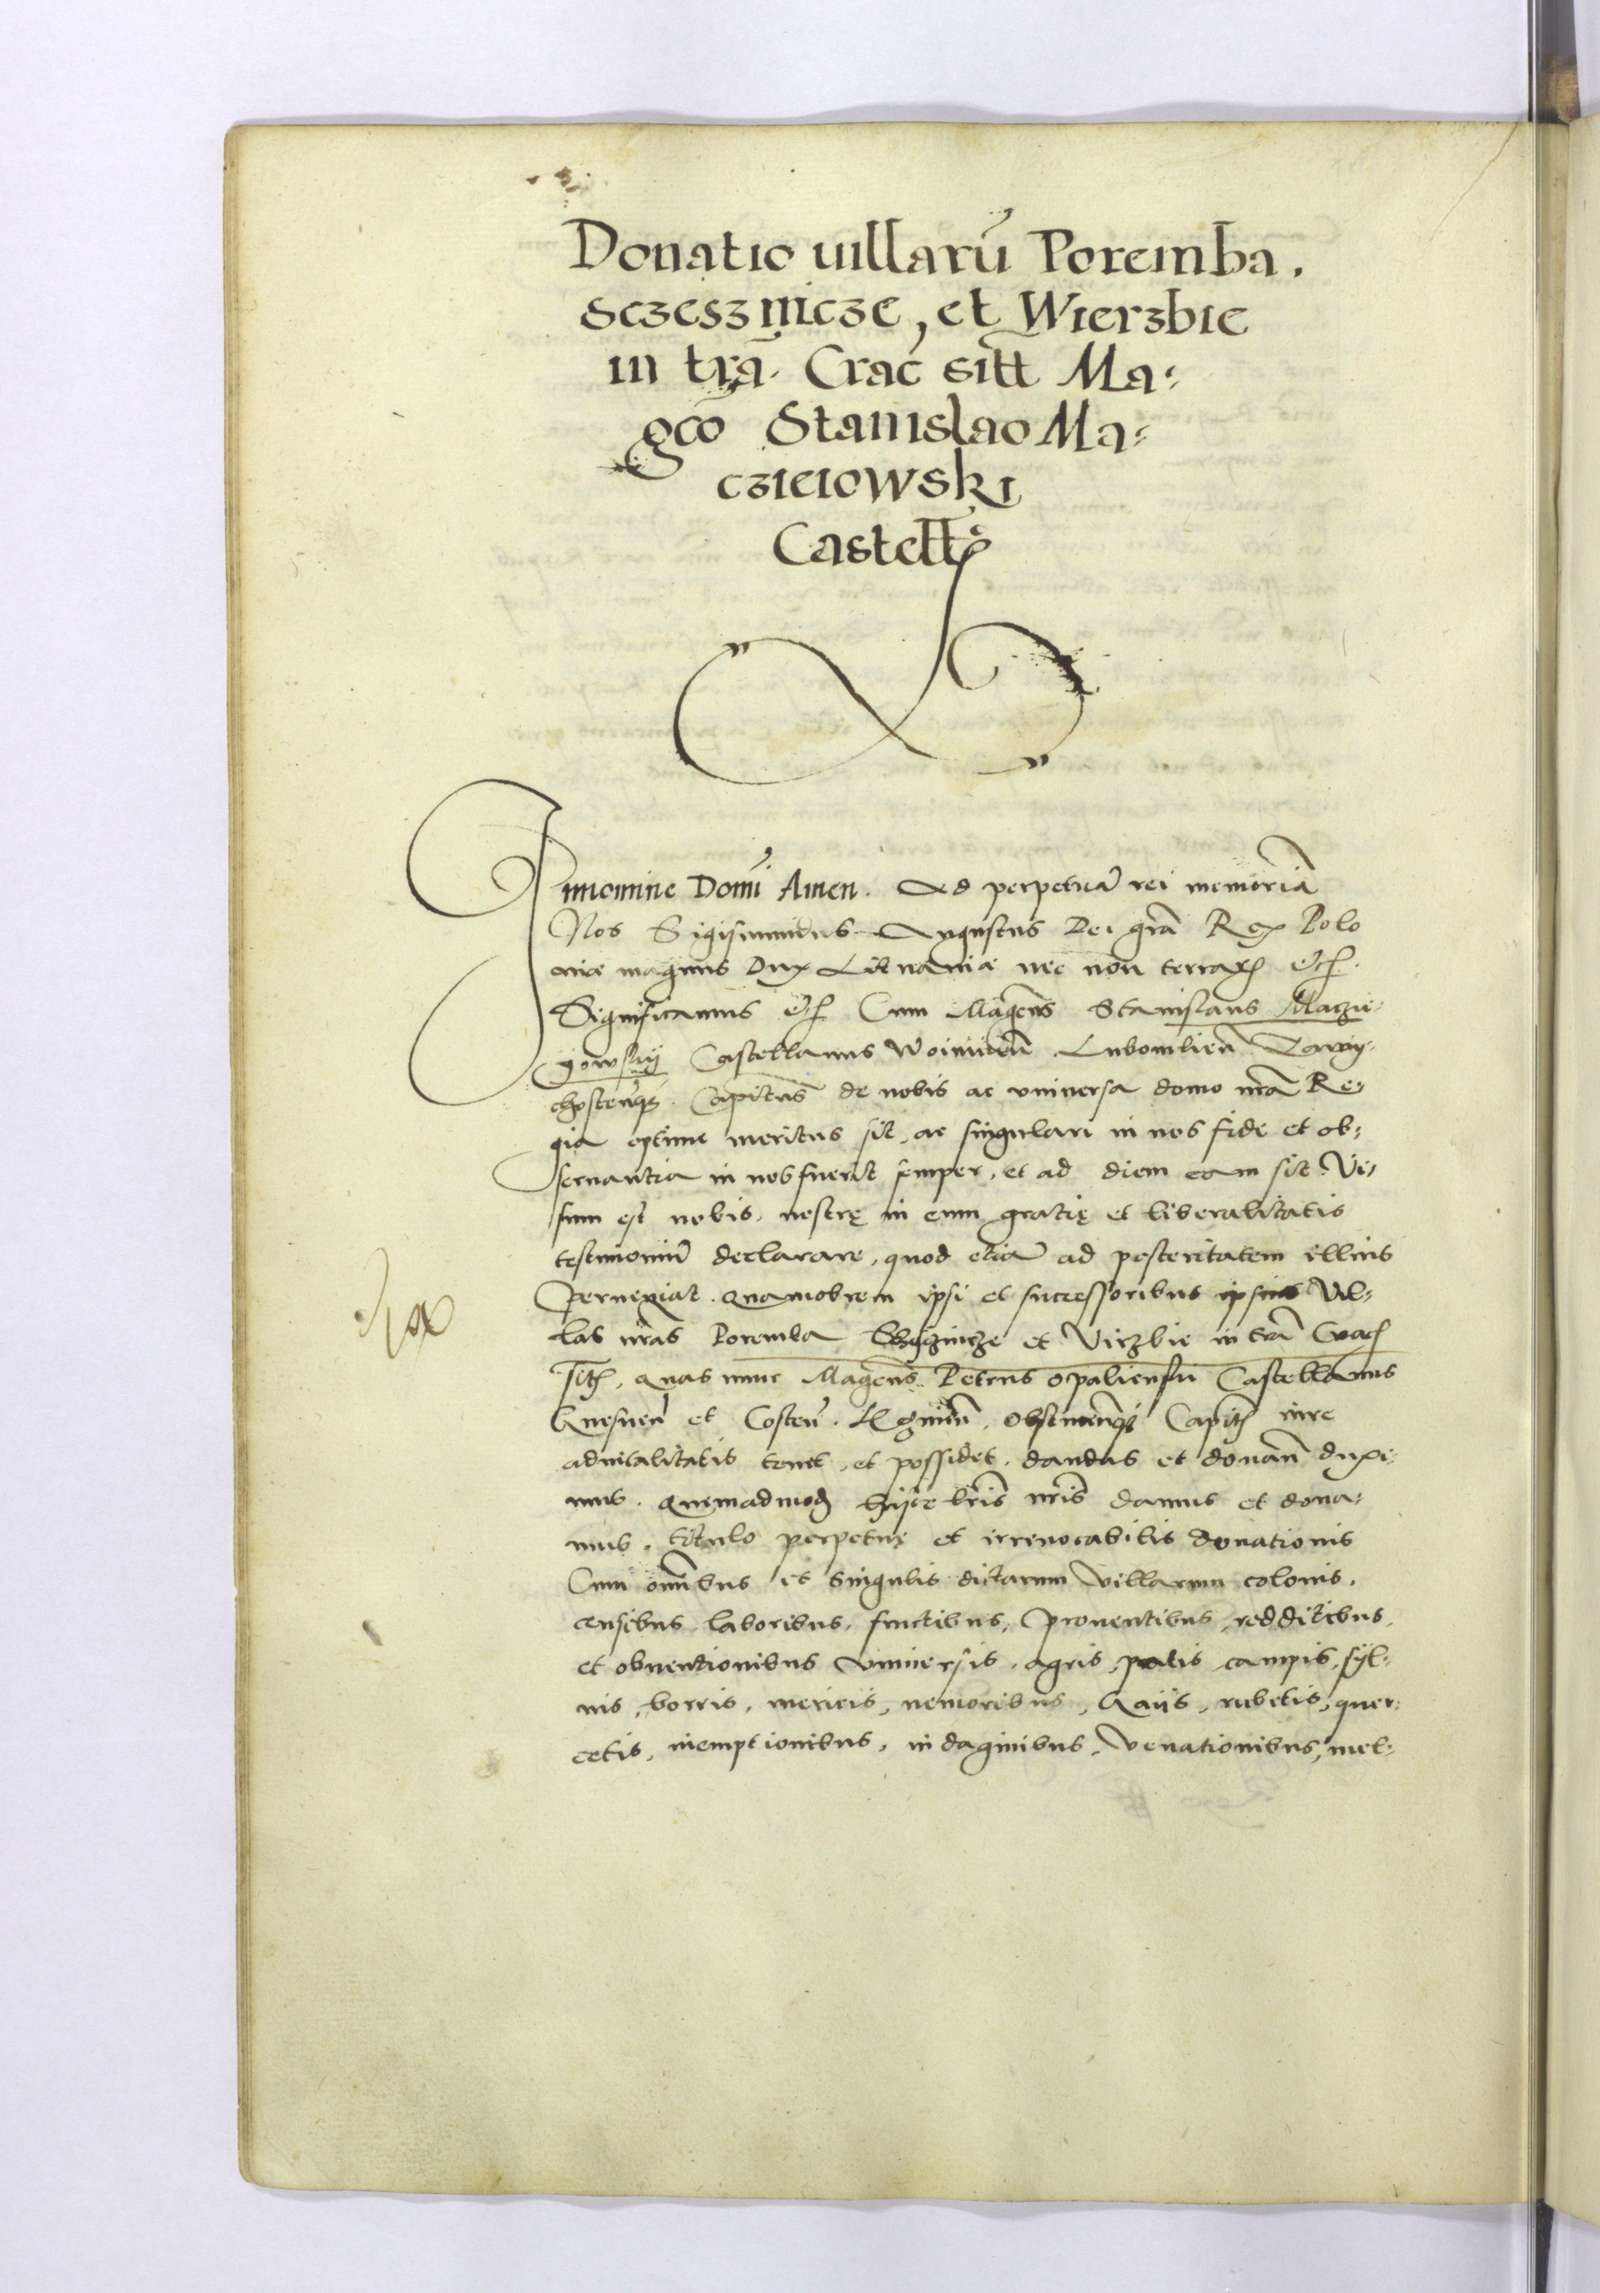 Donatio uillarū Poremba.
Sczesznicze, et Wierzbie
in trā. Crac̄ sitt Ma⸗
gcō Stanislao Ma⸗
czieiowski
Castell̄
In nomine Domī Amen. Ad perpetuā rei memoriā
Nos Sigismundus Augustus Dei grā Rex Polo
niæ magnus Dux Lituaniæ nec non terrarȝ etc.
Significamus etc. Cum Magcūs Stanislaus Maczie⸗
yowskij Castellanus Woinicēn Lubomliēn Zawy⸗
chostēnqȝ Capitūs de nobis ac vniuersa domo nrā Re⸗
gia optime meritus sit, ac singulari in nos fide et ob⸗
seruantia in nos fuerit semper, et ad diem eam sit Vi⸗
sum est nobis, nostrę in eum gratię et liberalitatis
testimoniū declarare, quod etiā ad posteritatem illius
perueniat. Quamobrem ipsi et successoribus ipsius Vil⸗
las nrās Poremba et Virzbie in trā Crac
sitȝ, quas nunc Magcūs Petrus Opalienski Castellanus
Gnesnēn et Costēn. Capitȝ iure
aduitalitatis tenet, et possidet, dandas et donān duxi⸗
mus. Quemadmodȝ hisce lrīs nrīs damus et dona⸗
mus, titulo perpetuę et irreuocabilis donationis
Cum omībus et singulis dictarum Villarum colonis,
censibus, laboribus, fructibus, prouentibus, redditibus,
et obuentionibus vniuersis, agris, pratis, campis, syl⸗
uis, borris, mericis, nemoribus, Gaiis, rubetis, quer⸗
cetis, indaginibus, venationibus, mel⸗